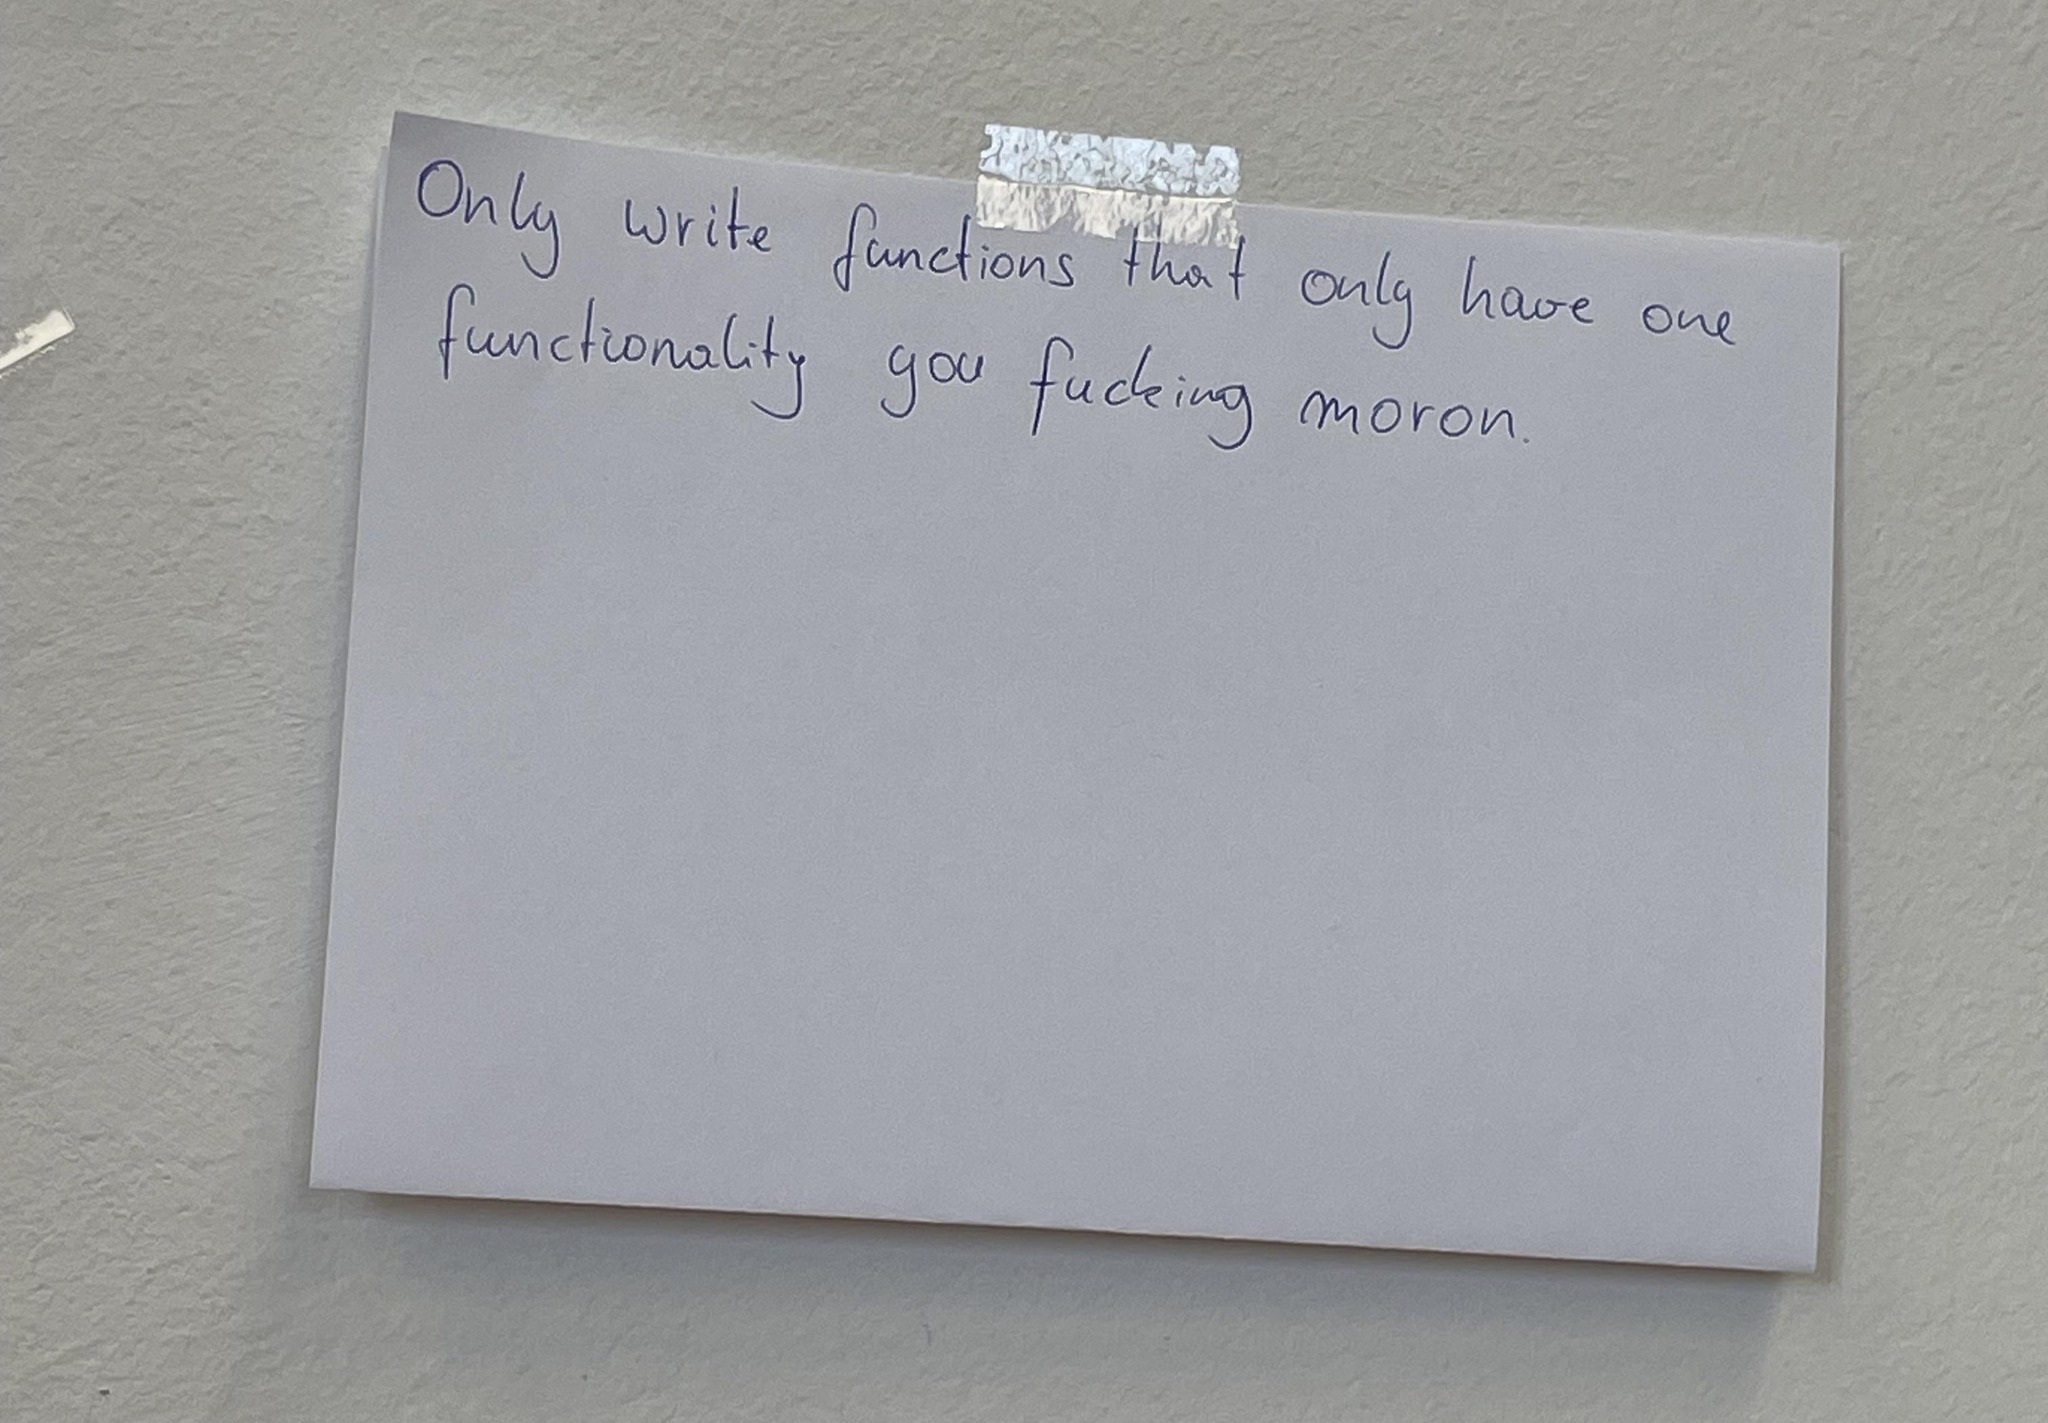 Only write functions that only have one
functionality you fucking moron.